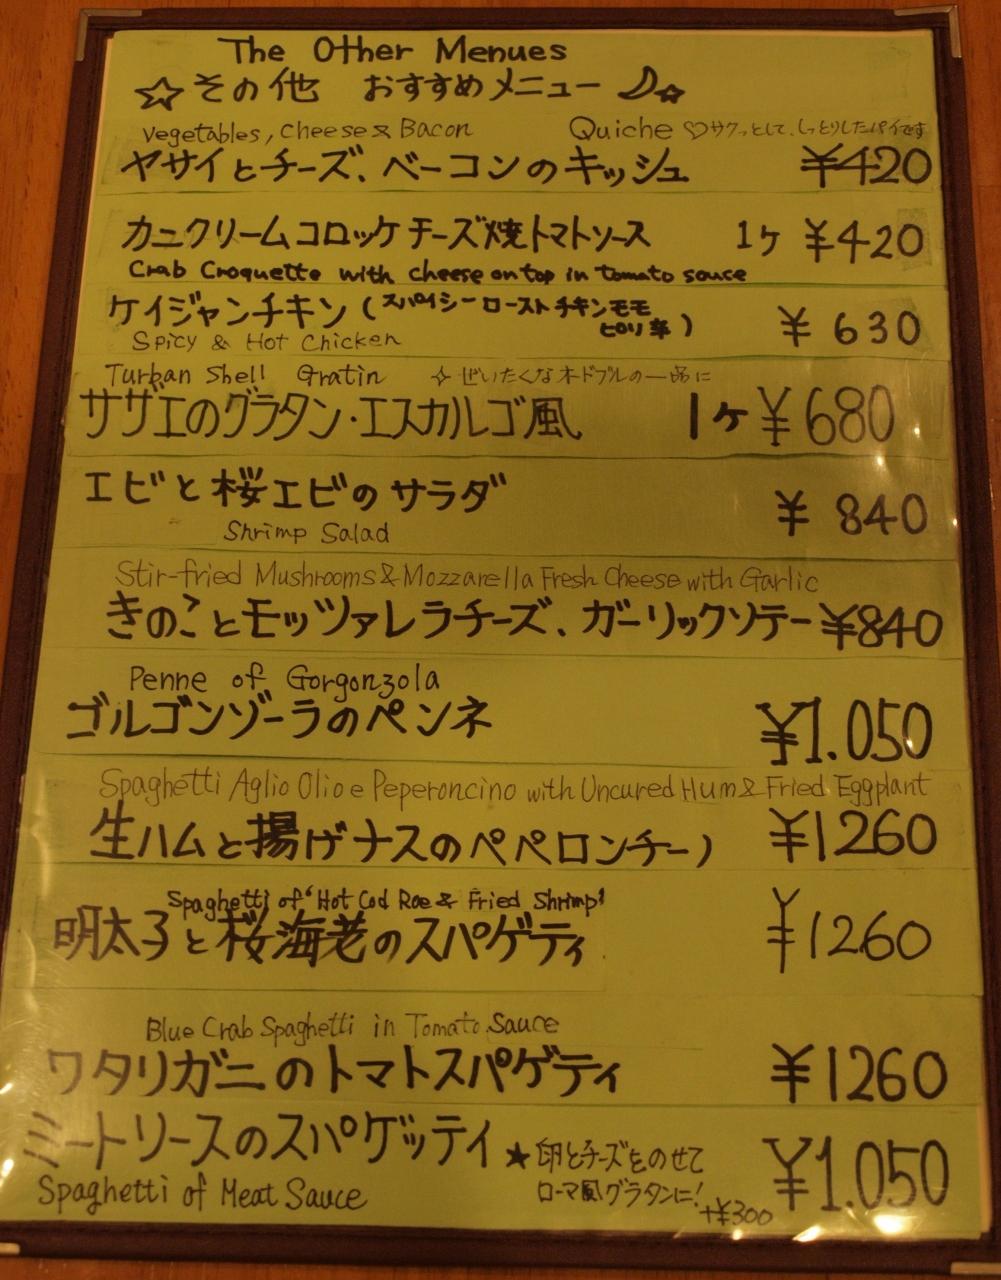 The Other Menues
☆その他 おすすめメニュー☽☆
Vegetables, Cheese & Bacon Quiche ♡サクッとして、しっとりしたパイです
ヤサイとチーズ、ベーコンのキッシュ ¥420
カニクリームコロッケチーズ焼トマトソース 1ケ ¥420
Crab Croquette with cheese on top in tomato sauce
ケイジャンチキン(スパイシーローストチキンモモ ¥630
ピリ辛)
Spicy & Hot Chicken
Turban Shell Gratin ✧ぜいたくなオードブルの一品に
サザエのグラタン・エスカルゴ風 1ケ ¥680
エビと桜エビのサラダ ¥840
Shrimp Salad
Stir-fried Mushrooms & Mozzarella Fresh Cheese with Garlic
きのことモッツァレラチーズ、ガーリックソテー ¥840
Penne of Gorgonzola
ゴルゴンゾーラのペンネ ¥1.050
Spaghetti Aglio Olio e Peperoncino with Uncured Hum & Fried Eggplant
生ハムと揚げナスのペペロンチーノ ¥1260
Spaghetti of 'Hot Cod Roe & Fried Shrimp'
明太子と桜海老のスパゲティ ¥1260
Blue Crab Spaghetti in Tomato Sauce
ワタリガニのトマトスパゲティ ¥1260
ミートソースのスパゲッティ ★卵とチーズをのせて ¥1.050
ローマ風グラタンに! +¥300
Spaghetti of Meat Sauce